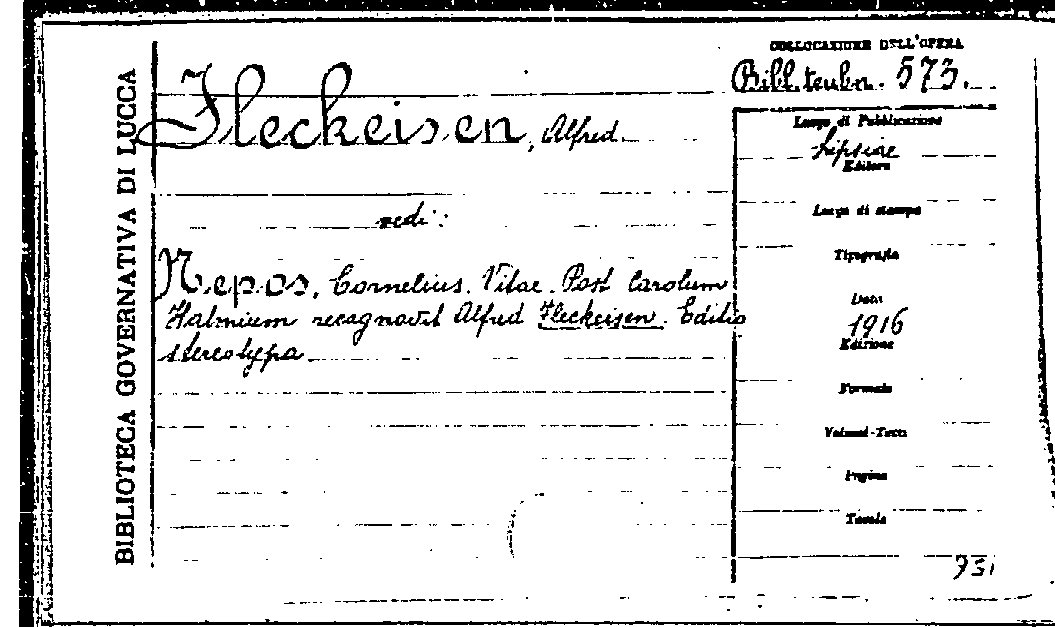 BIBLIOTECA GOVERNATIVA DI LUCCA
COLLOCAZIONE DELL'OPERA
Bibl. teubn. 573.
Fleckeisen, Alfred.
vedi:
Nepos, Cornelius. Vitae. Post Carolum
Halmium recagnovit Alfred Fleckeisen. Editio
stereotypa.
Luogo di Pubblicazione
Lipsiae
Editore
Luogo di stampa
Tipografia
Data
1916
Edizione
Formato
Volumi-Tomi
Pagine
Tavole
931